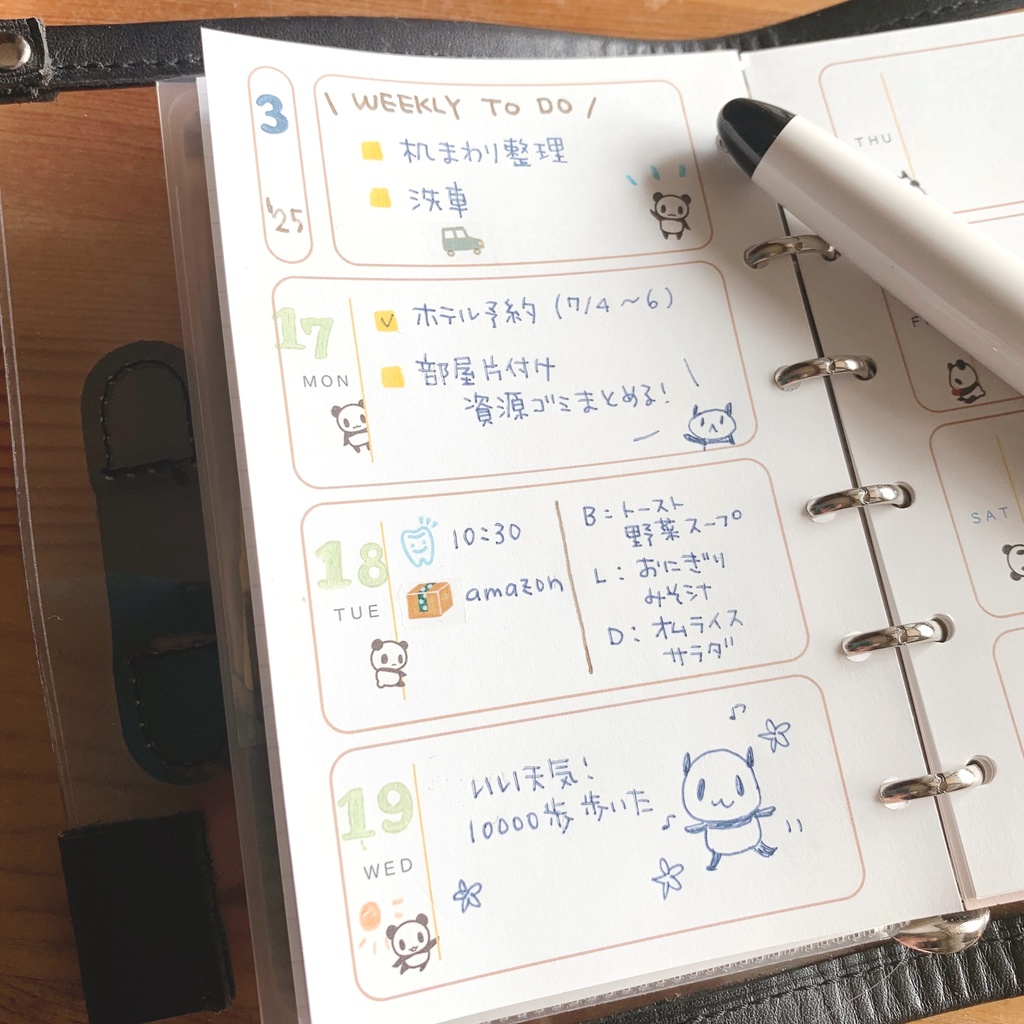 3
'25
\ WEEKLY TO DO /
机まわり整理
洗車
17
MON
ホテル予約 (7/4～6)
部屋片付け
資源ゴミまとめる!
18
TUE
10:30
amazon
B: トースト
野菜スープ
L: おにぎり
みそ汁
D: オムライス
サラダ
19
WED
いい天気!
10000歩 歩いた
THU
SAT